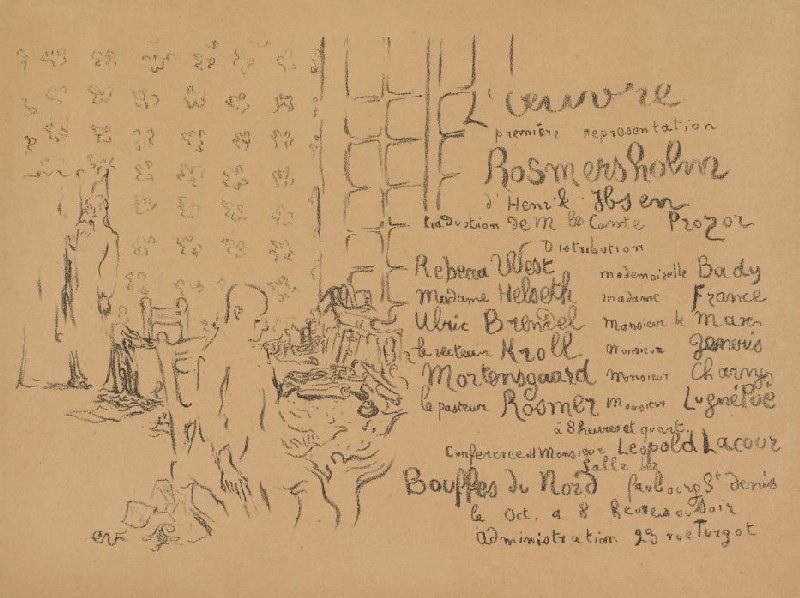 L'Œuvre
première representation
Rosmersholm
d'Henrik Ibsen
traduction de M le Comte Prozor
Distribution
Rebecca West mademoiselle Bady
Madame Helseth madame France
Ulric Brendel Monsieur de Max
le recteur Kroll Monsieur
Mortensgaard Monsieur Charny
le pasteur Rosmer Monsieur Lugné Poë
à 8 heures et quart
Conference Monsieur Leopold Lacour
Salle des
Bouffes du Nord faubourg St denis
le Oct. a 8 heures du Soir
Administration 23 rue Turgot